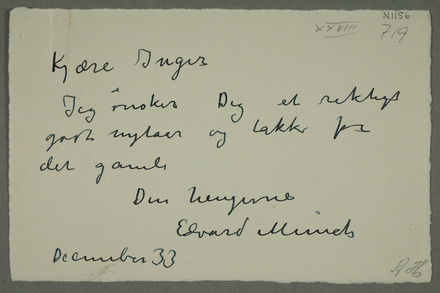 XXVIII
N1156
719
Kjære Inger
Jeg ønsker Dig et riktigt
godt nytaar og takker for
det gamle
Din hengivne
Edvard Munch
December 33